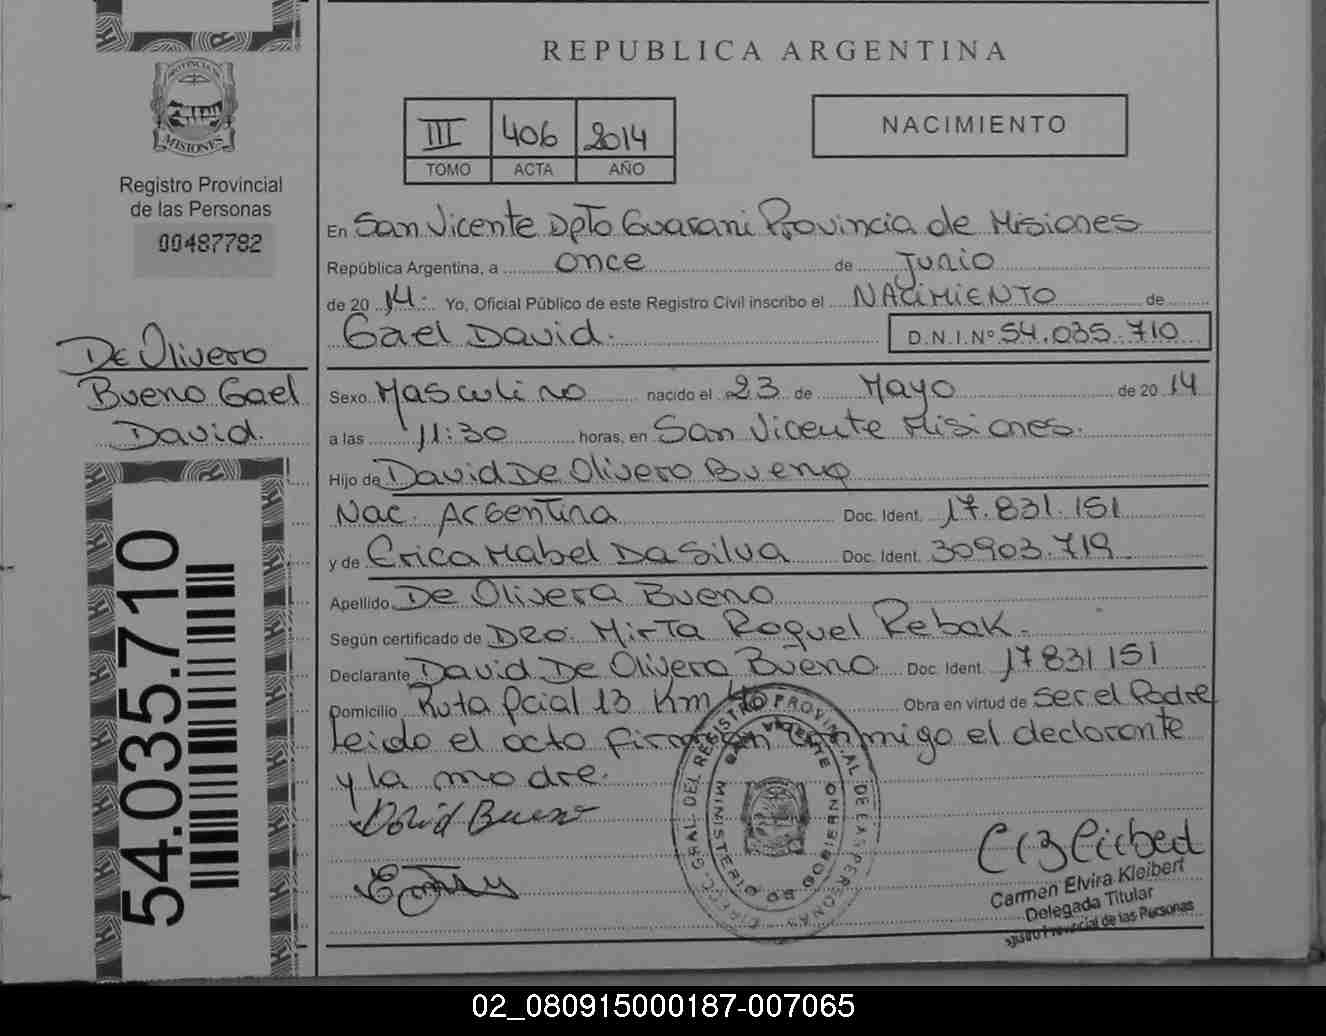 REPUBLICA ARGENTINA
PROVINCIA DE
MISIONES
Registro Provincial
de las Personas
00487782
III 406 2014
TOMO ACTA AÑO
NACIMIENTO
De Olivero
Bueno Gael
David.
54.035.710
En San Vicente Dpto Guarani Provincia de Misiones
República Argentina, a once de Junio
de 20 14. Yo, Oficial Público de este Registro Civil inscribo el NACIMIENTO de
Gael David. D.N.I.Nº 54.035.710
Sexo Masculino nacido el 23 de Mayo de 20 14
a las 11:30 horas, en San Vicente Misiones.
Hijo de David De Olivero Bueno
Nac. Argentina Doc. Ident. 17.831.151
y de Erica Mabel Da Silva Doc. Ident. 30903.719
Apellido De Olivera Bueno
Según certificado de Dra. Mirta Raquel Rebak.
Declarante David De Olivera Bueno Doc. Ident. 17831151
Domicilio Ruta Pcial 13 Km 40 Obra en virtud de Ser el Padre
Leido el acto firman conmigo el declarante
y la madre.
David Bueno
GRAL. DEL REGISTRO PROVINCIAL DE LAS PERSONAS
SAN VICENTE
MINISTERIO DE GOBIERNO
Carmen Elvira Kleibert
Delegada Titular
Provincial de las Personas
02_080915000187-007065